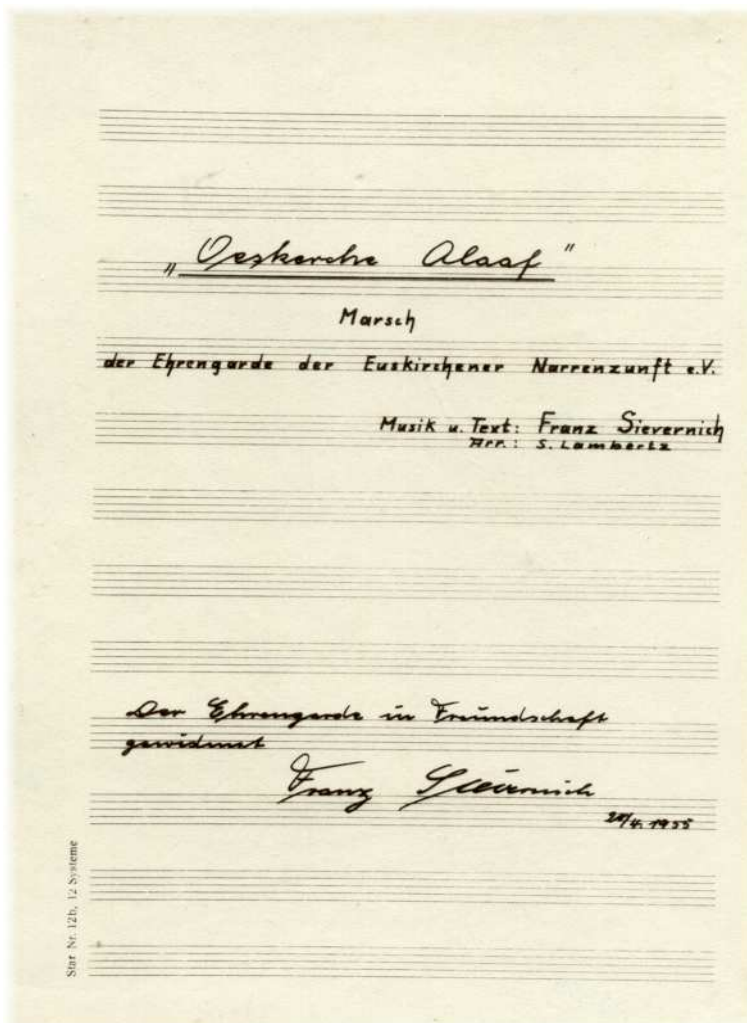 „Oeskerche Alaaf"
Marsch
der Ehrengarde der Euskirchener Narrenzunft e.V.
Musik u. Text: Franz Sievernich
Arr.: S. Lambertz
Der Ehrengarde in Freundschaft
gewidmet
Franz Sievernich
/4. 1955
Star Nr. 12b, 12 Systeme